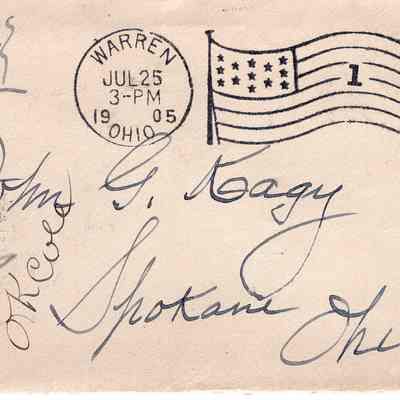 WARREN
JUL 25
3-PM
1905
OHIO
1
John G. Kagy
Spokane Ohio
OK Cole